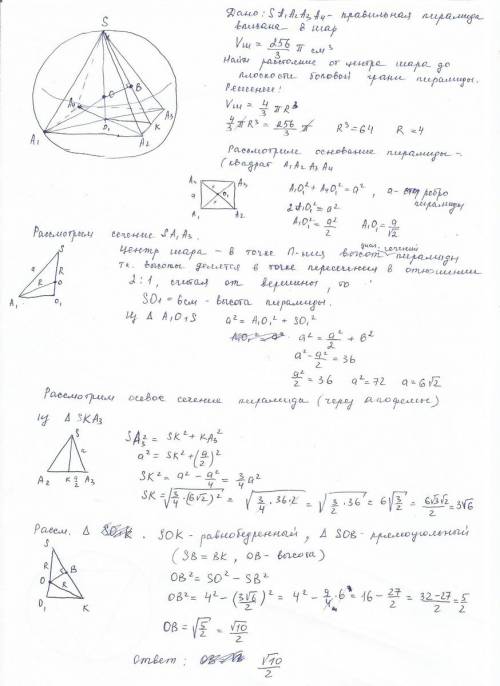 Дано: SA₁A₂A₃A₄ - правильная пирамида
вписана в шар
Vш = 256/3 π см³
Найти расстояние от центра шара до
плоскости боковой грани пирамиды.
Решение:
Vш = 4/3 πR³
4/3 πR³ = 256/3 π R³ = 64 R = 4
Рассмотрим основание пирамиды -
(квадрат A₁A₂A₃A₄
A₁O₁² + A₄O₁² = a², a - ребро
пирамиды
2A₁O₁² = a²
A₁O₁² = a²/2 A₁O₁ = a/√2
S
O
B
A₄
A₃
O₁
K
A₁
A₂
A₄ A₃
a
A₁ A₂
Рассмотрим сечение SA₁A₃.
Центр шара - в точке П-ния высот диаг. сечений пирамиды
т.к. высоты делятся в точке пересечения в отношении
2:1, считая от вершины, то
SO₁ = 6см - высота пирамиды.
Из Δ A₁O₁S a² = A₁O₁² + SO₁²
a² = a²/2 + 6²
a² - a²/2 = 36
a²/2 = 36 a² = 72 a = 6√2
S
a
R
R O
A₁ O₁
Рассмотрим осевое сечение пирамиды (через апофемы)
Из Δ SKA₃
SA₃² = SK² + KA₃²
a² = SK² + (a/2)²
SK² = a² - a²/4 = 3/4 a²
SK = √(3/4·(6√2)²) = √(3/4·36·2) = √(3/2·36) = 6√(3/2) = 6√3√2/2 = 3√6
S
a
A₂ K a/2 A₃
Рассм. Δ SOK. SOK - равнобедренный, Δ SOB - прямоугольный
(SB = BK, OB - высота)
OB² = SO² - SB²
OB² = 4² - (3√6/2)² = 4² - 9/4·6 = 16 - 27/2 = 32-27/2 = 5/2
OB = √(5/2) = √10/2
S
R
B
O
R
O₁ K
Ответ: √10/2